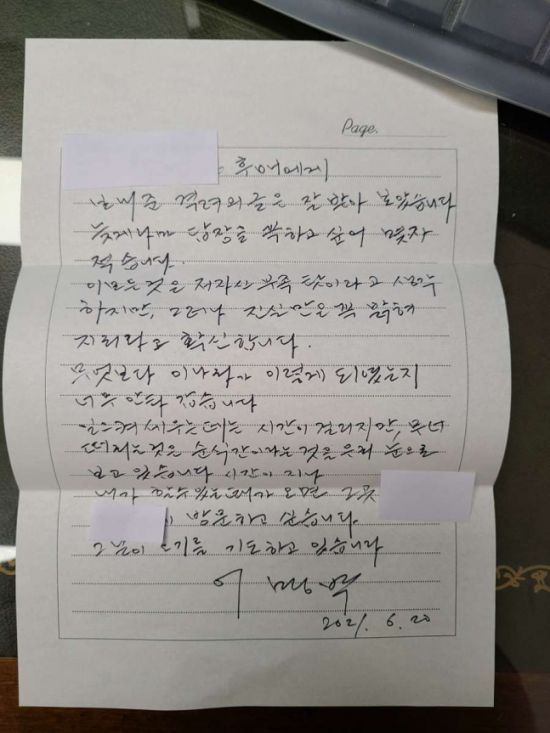 Page.
후배에게
보내준 격려의 글은 잘 받아 보았습니다
늦게나마 답장을 꼭하고 싶어 몇자
적습니다.
이 모든것은 저자신 부족 탓이라고 생각
하지만, 그러나 진실만은 꼭 밝혀
지리라고 확신합니다.
무엇보다 이나라가 이렇게 되었는지
너무 안타 깝습니다
일으켜 세우는데는 시간이 걸리지만, 무너
떠리는것은 순식간이라는것을 우리 눈으로
보고 있습니다 시간이 지나
내가 갈수 있는때가 오면 그곳
방문하고 싶습니다.
그날이 오기를 기도하고 있습니다
이 명 박
2021. 6. 20